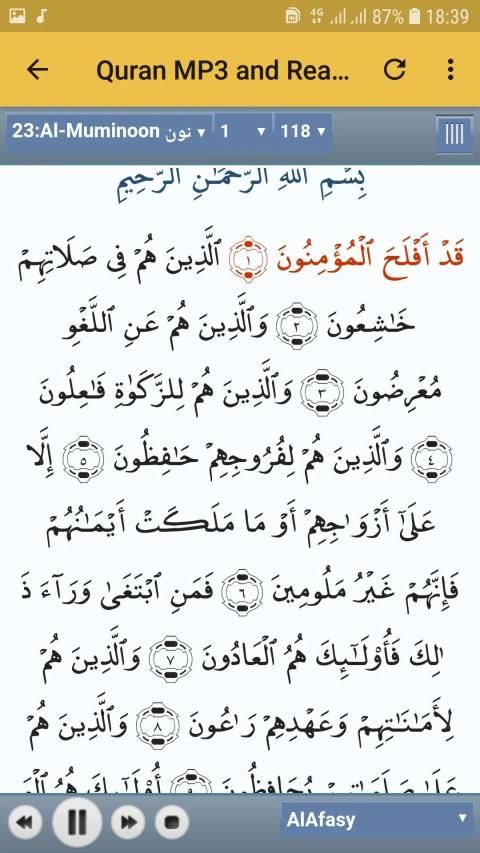 4G 87% 18:39
Quran MP3 and Rea...
23:Al-Muminoon نون 1 118
بِسْمِ اللهِ الرَّحْمَٰنِ الرَّحِيمِ
قَدْ أَفْلَحَ ٱلْمُؤْمِنُونَ ١ ٱلَّذِينَ هُمْ فِى صَلَاتِهِمْ
خَٰشِعُونَ ٢ وَٱلَّذِينَ هُمْ عَنِ ٱللَّغْوِ
مُعْرِضُونَ ٣ وَٱلَّذِينَ هُمْ لِلزَّكَوٰةِ فَٰعِلُونَ
٤ وَٱلَّذِينَ هُمْ لِفُرُوجِهِمْ حَٰفِظُونَ ٥ إِلَّا
عَلَىٰٓ أَزْوَٰجِهِمْ أَوْ مَا مَلَكَتْ أَيْمَٰنُهُمْ
فَإِنَّهُمْ غَيْرُ مَلُومِينَ ٦ فَمَنِ ٱبْتَغَىٰ وَرَآءَ ذَ
ٰلِكَ فَأُو۟لَٰٓئِكَ هُمُ ٱلْعَادُونَ ٧ وَٱلَّذِينَ هُمْ
لِأَمَٰنَٰتِهِمْ وَعَهْدِهِمْ رَٰعُونَ ٨ وَٱلَّذِينَ هُمْ
عَلَىٰ صَلَوَٰتِهِمْ يُحَافِظُونَ ٩ أُو۟لَٰٓئِكَ هُمُ
AlAfasy